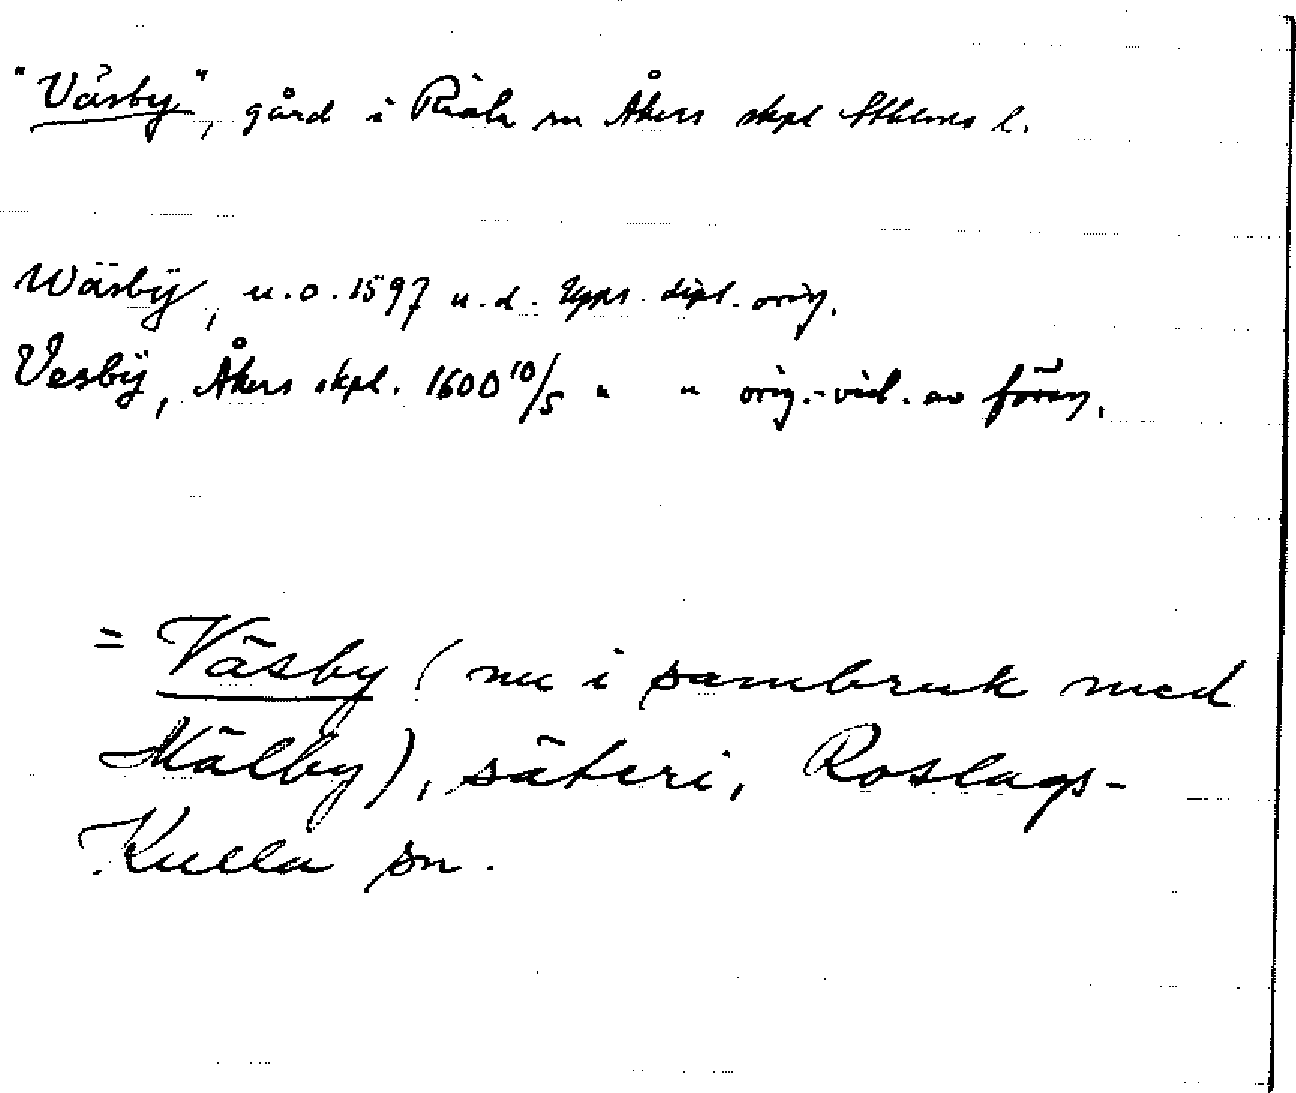 "Väsby", gård i Riala sn Åkers skpl Sthlms l.
Wäsbÿ, u.o. 1597 u.d. Upps. dipl. orig.
Vesbÿ, Åkers skpl. 1600 10/5 " " orig.-vid. av fören.
= Väsby (nu i sambruk med
Mälby), säteri, Roslags-
Kulla sn.